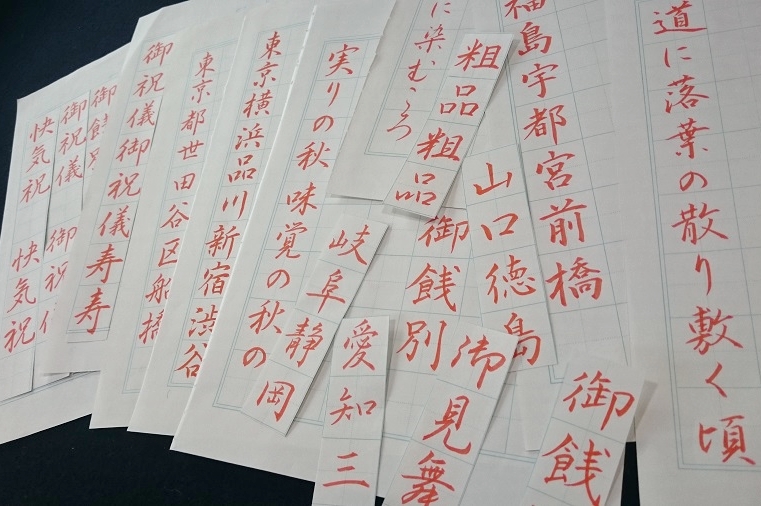 道に落葉の散り敷く頃
福島宇都宮前橋
山口徳島
粗品粗品
に染む
御餞別
御見舞
御餞
岐阜静岡
愛知三
実りの秋味覚の秋の
東京横浜品川新宿渋谷
東京都世田谷区船橋
御祝儀御祝儀寿寿
御餞
御祝儀 御祝儀
快気祝 快気祝